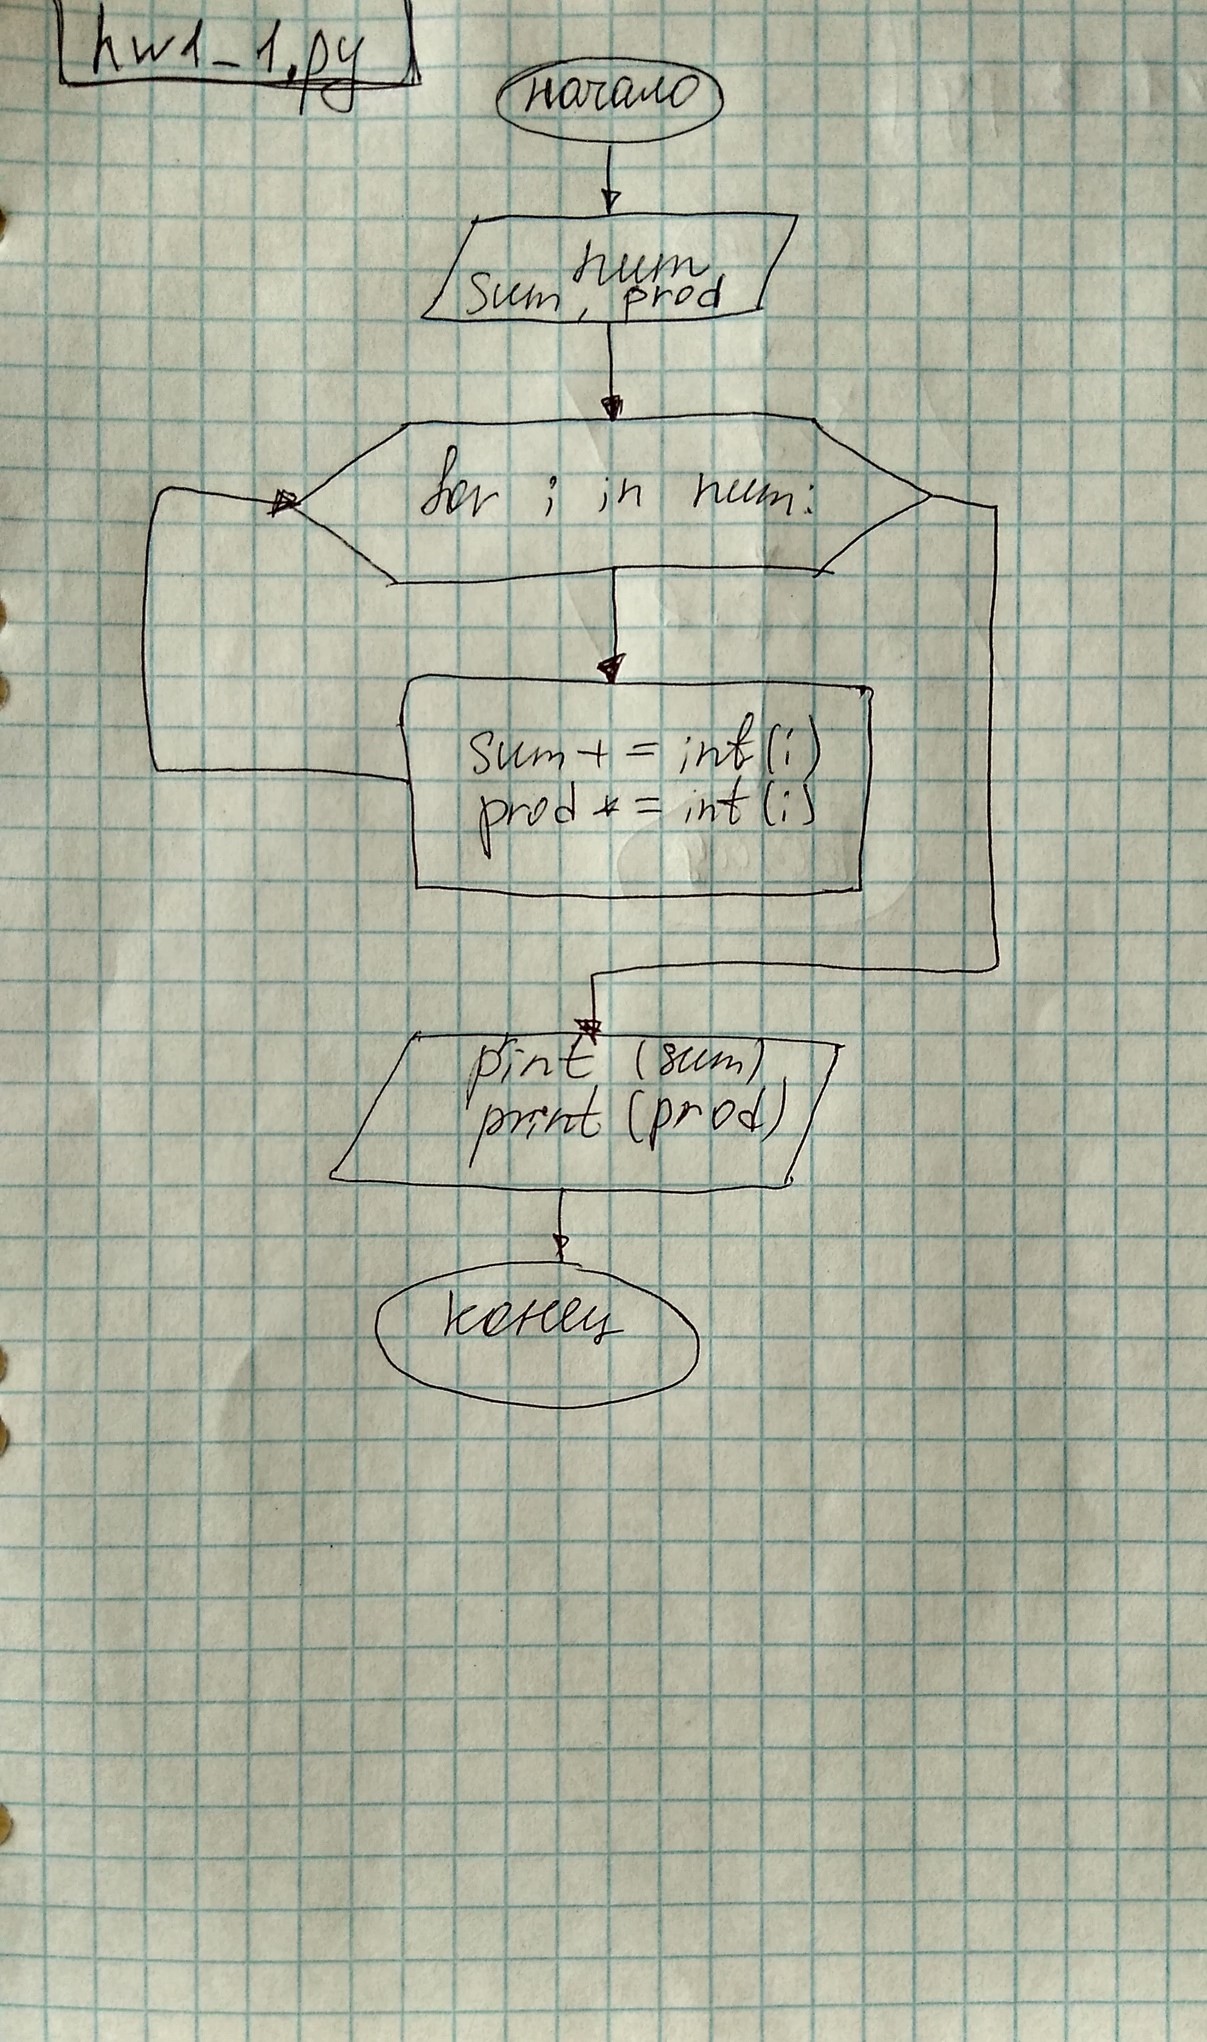 hw1_1.py
начало
num
sum, prod
for i in num:
sum += int(i)
prod *= int(i)
pint (sum)
print (prod)
конец